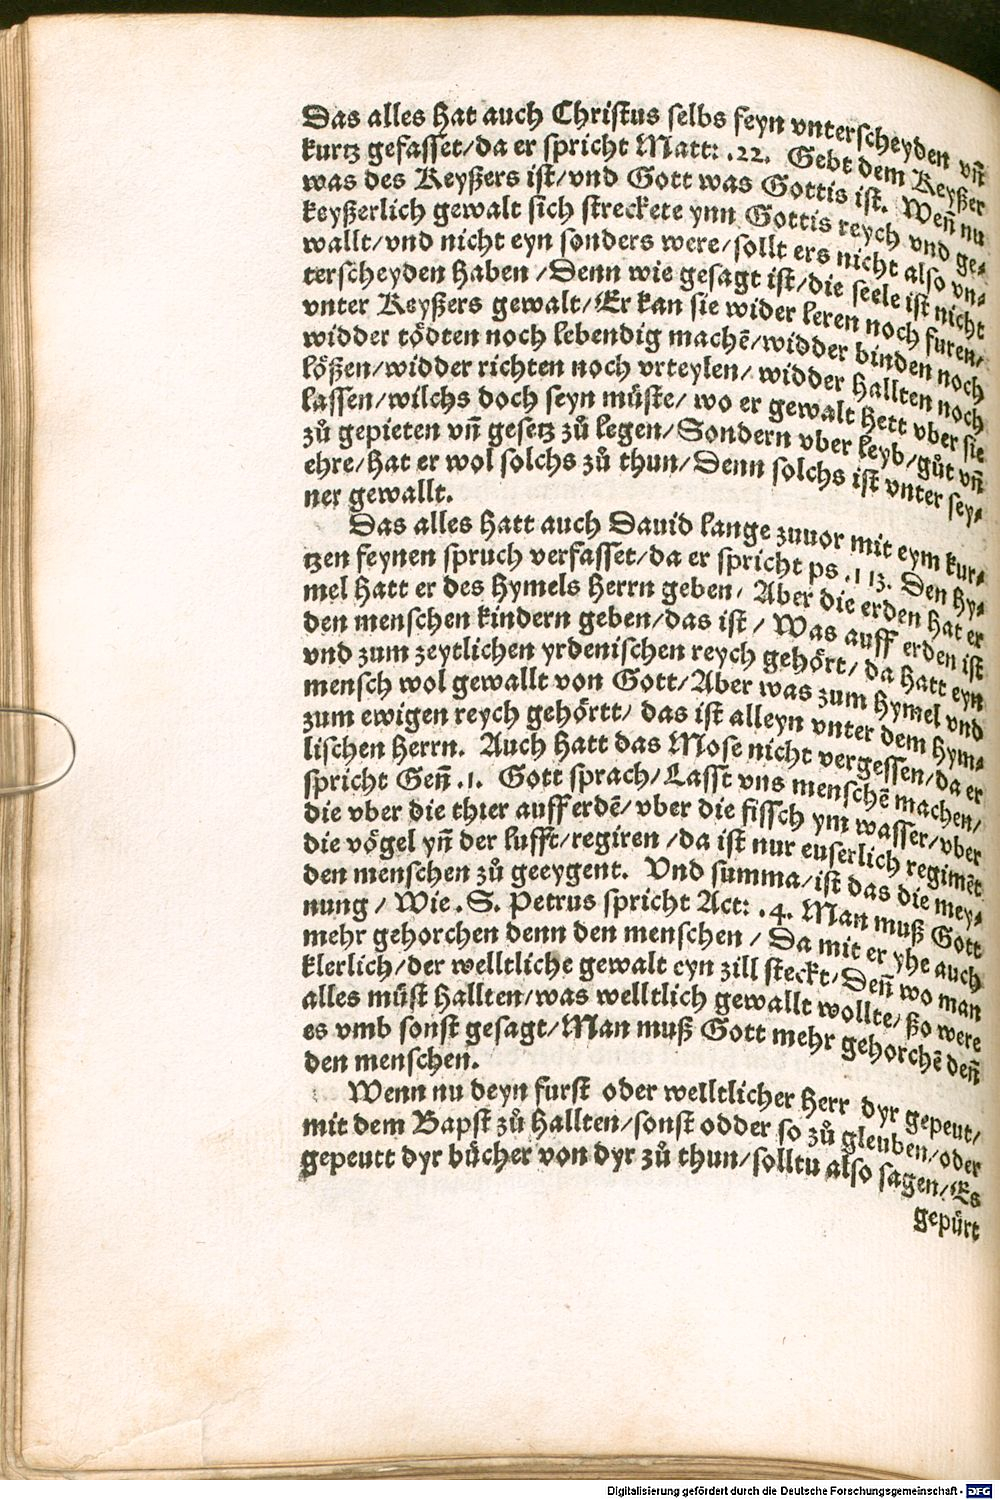 Das alles hat auch Christus selbs feyn vnterscheyden vñ
kurtz gefasset/da er spricht Matt: .22. Gebt dem Keyßer
was des Keyßers ist/vnd Gott was Gottis ist. Weñ nu
keyßerlich gewalt sich streckete ynn Gottis reych vnd ge⸗
wallt/vnd nicht eyn sonders were/sollt ers nicht also vn⸗
terscheyden haben /Denn wie gesagt ist/die seele ist nicht
vnter Keyßers gewalt/Er kan sie wider leren noch furen/
widder tödten noch lebendig machē/widder binden noch
lößen/widder richten noch vrteylen/ widder hallten noch
lassen/wilchs doch seyn müste/ wo er gewalt hett vber sie
zů gepieten vñ gesetz zů legen/Sondern vber leyb/gůt vñ
ehre/hat er wol solchs zů thun/Denn solchs ist vnter sey⸗
ner gewallt.
Das alles hatt auch Dauid lange zuuor mit eym kur⸗
tzen feynen spruch verfasset/da er spricht ps .113. Den hy⸗
mel hatt er des hymels Herrn geben/ Aber die erden hat er
den menschen kindern geben/das ist / Was auff erden ist
vnd zum zeytlichen yrdenischen reych gehört/ da hatt eyn
mensch wol gewallt von Gott/Aber was zum hymel vnd
zum ewigen reych gehörtt/ das ist alleyn vnter dem hym⸗
lischen herrn. Auch hatt das Mose nicht vergessen/da er
spricht Geñ .1. Gott sprach/Lasst vns menschē machen/
die vber die thier auff erdē/vber die fissch ym wasser/vber
die vögel yñ der lufft/regiren /da ist nur euserlich regimēt
den menschen zů geeygent. Vnd summa/ist das die mey⸗
nung / Wie .S. Petrus spricht Act: .4. Man muß Gott
mehr gehorchen denn den menschen / Da mit er yhe auch
klerlich/der welltliche gewalt eyn zill steckt/Deñ wo man
alles müst hallten/was welltlich gewallt wollte/ßo were
es vmb sonst gesagt/Man muß Gott mehr gehorchē deñ
den menschen.
Wenn nu deyn furst oder welltlicher herr dyr gepeut/
mit dem Bapst zů hallten/sonst odder so zů gleuben/oder
gepeutt dyr bücher von dyr zů thun/solltu also sagen/Es
gepürt
Digitalisierung gefördert durch die Deutsche Forschungsgemeinschaft - DFG